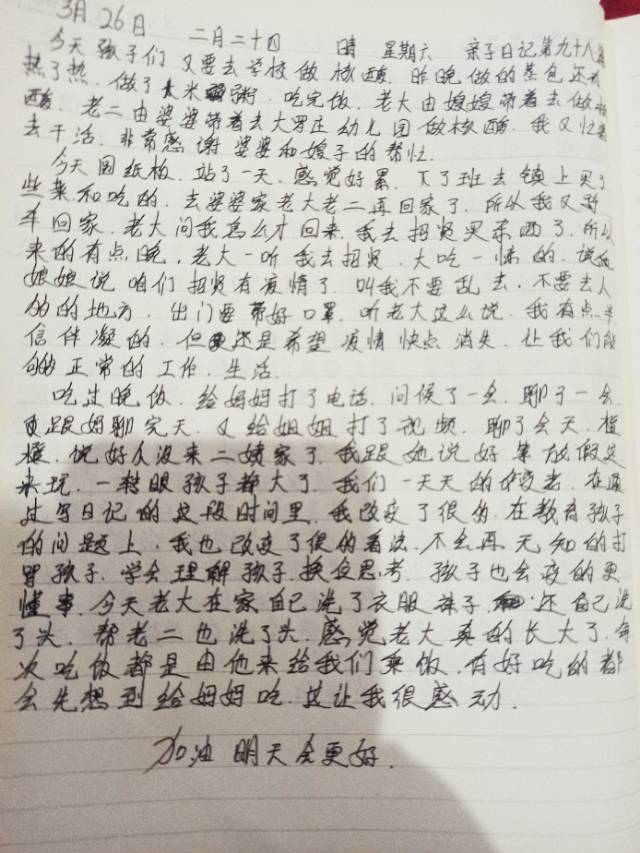 3月26日 二月二十四 晴 星期六 亲子日记第九十八
今天孩子们又要去学校做核酸.昨晚做的蒸包还有
热了热.做了大米粥.吃完饭.老大由娘娘带着去做核
酸.老二由婆婆带着去大罗庄幼儿园做核酸.我又忙着
去干活.非常感谢婆婆和嫂子的帮忙.
今天圆纸板.站了一天.感觉好累.下了班去镇上买了
些菜和吃的.去婆婆家老大老二再回家了.所以我又
车回家.老大问我怎么才回来.我去招贤买东西了.所以
来的有点晚.老大一听我去招贤.大吃一惊的.说
娘娘说咱们招贤有疫情了.叫我不要乱去.不要去人
多的地方.出门要带好口罩.听老大这么说.我有点半
信伴凝的.但还是希望疫情快点消失.让我们能
够正常的工作.生活.
吃过晚饭.给妈妈打了电话.问候了一会.聊了一会.
跟妈聊完天.又给姐姐打了视频.聊了会天.橙
橙.说好久没来二姨家了.我跟她说好等放假
来玩.一转眼孩子都大了.我们一天天的变老.在通
过写日记的这段时间里.我改变了很多.在教育孩子
的问题上.我也改变了很多看法.不会再无知的打
骂孩子.学会理解孩子.换位思考.孩子也会变的更
懂事.今天老大在家自己洗了衣服裤子.还自己洗
了头.帮老二也洗了头.感觉老大真的长大了.每
次吃饭都是由他来给我们乘饭.有好吃的都
会先想到给妈妈吃.这让我很感动.
加油明天会更好.